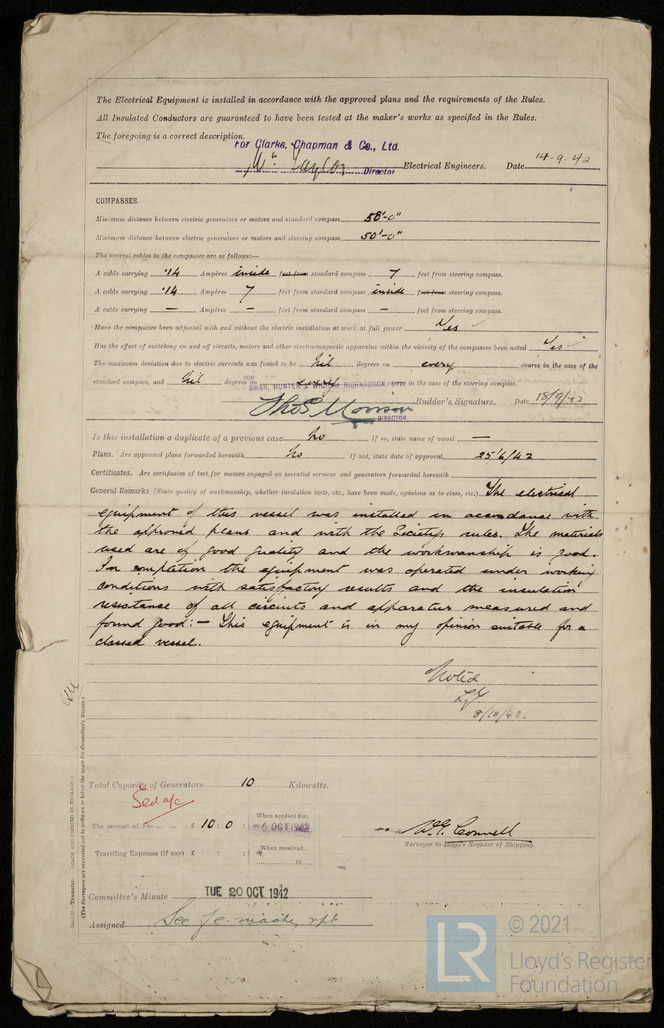 The Electrical Equipment is installed in accordance with the approved plans and the requirements of the Rules.
All Insulated Conductors are guaranteed to have been tested at the maker's works as specified in the Rules.
The foregoing is a correct description.
For Clarke, Chapman & Co., Ltd.
Wm Taylor Director Electrical Engineers. Date 14-9-42
COMPASSES.
Minimum distance between electric generators or motors and standard compass 58'-0"
Minimum distance between electric generators or motors and steering compass 50'-0"
The nearest cables to the compasses are as follows:—
A cable carrying .14 Ampères inside feet from standard compass 7 feet from steering compass.
A cable carrying .14 Ampères 7 feet from standard compass inside feet from steering compass.
A cable carrying — Ampères — feet from standard compass — feet from steering compass.
Have the compasses been adjusted with and without the electric installation at work at full power Yes ✓
Has the effect of switching on and off circuits, motors and other electro-magnetic apparatus within the vicinity of the compasses been noted Yes ✓
The maximum deviation due to electric currents was found to be Nil degrees on every course in the case of the
standard compass, and Nil degrees on every course in the case of the steering compass.
FOR
SWAN, HUNTER & WIGHAM RICHARDSON,
Thos Morison DIRECTOR Builder's Signature. Date 18/9/42
Is this installation a duplicate of a previous case No If so, state name of vessel —
Plans. Are approved plans forwarded herewith No If not, state date of approval 25/6/42
Certificates. Are certificates of test for motors engaged on essential services and generators forwarded herewith
General Remarks (State quality of workmanship, whether insulation tests, etc., have been made, opinions as to class, etc.) The electrical
equipment of this vessel was installed in accordance with
the approved plans and with the Society's rules. The materials
used are of good quality and the workmanship is good.
On completion the equipment was operated under working
conditions with satisfactory results and the insulation
resistance of all circuits and apparatus measured and
found good:— This equipment is in my opinion suitable for a
classed vessel.
Noted
8/10/42.
Total Capacity of Generators 10 Kilowatts.
Sed a/c
The amount of Fee ... ... £ 10 : 0 : When applied for,
6 OCT 1942
Travelling Expenses (if any) £ : : When received,
19
W. G. Connell
Surveyor to Lloyd's Register of Shipping.
Committee's Minute TUE 20 OCT 1942
Assigned See F.E. mach. rpt
(The Surveyors are requested not to write on or below the space for Committee's Minute.)
© 2021
LR
Lloyd's Register
Foundation